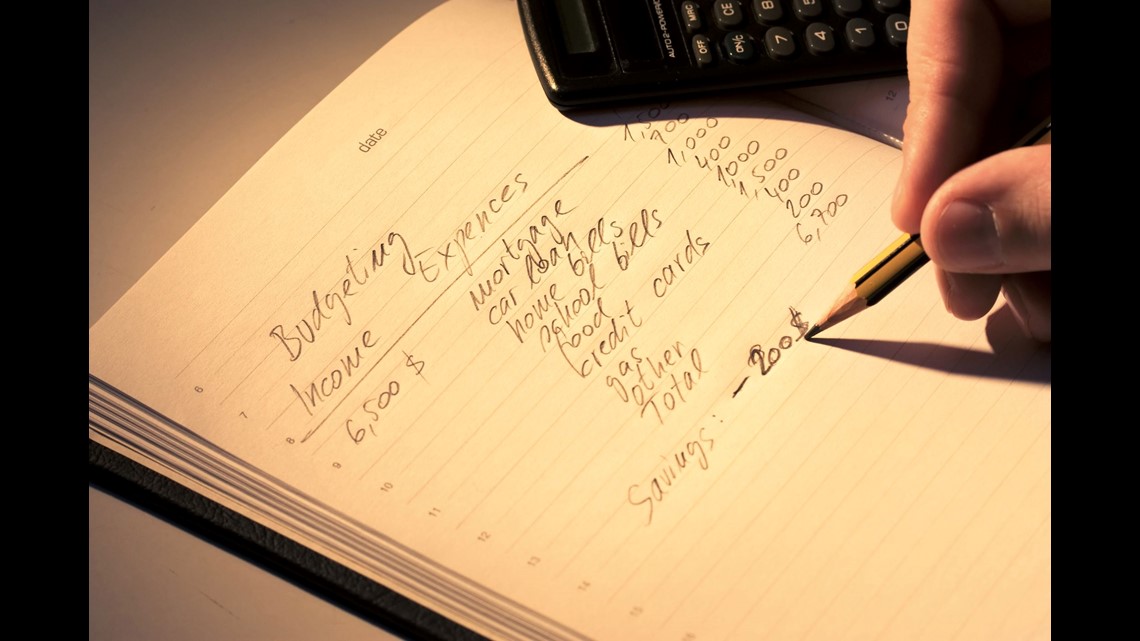 AUTO 2-POWER
MRC CE 8
OFF ON/C 7 4 1 0
date
Budgeting
Income Expences
6,500 $ mortgage 1,500
car loan 700
home bills 1,000
school bills 400
food 1000
credit cards 1,500
gas 400
other 200
Total 6,700
Savings: -200$
6
7
8
9
10
11
12
13
14
15
12